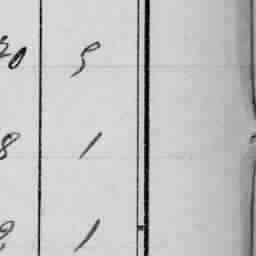 20 5
8 1
2 1